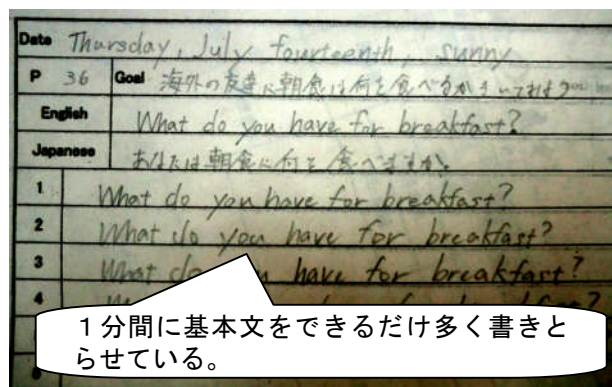 Date Thursday, July fourteenth, sunny
P 36 Goal 海外の友達に朝食は何を食べるかきいてみよう
English What do you have for breakfast?
Japanese あなたは朝食に何を食べますか。
1 What do you have for breakfast?
2 What do you have for breakfast?
3 What do you have for breakfast?
4
１分間に基本文をできるだけ多く書きと
らせている。